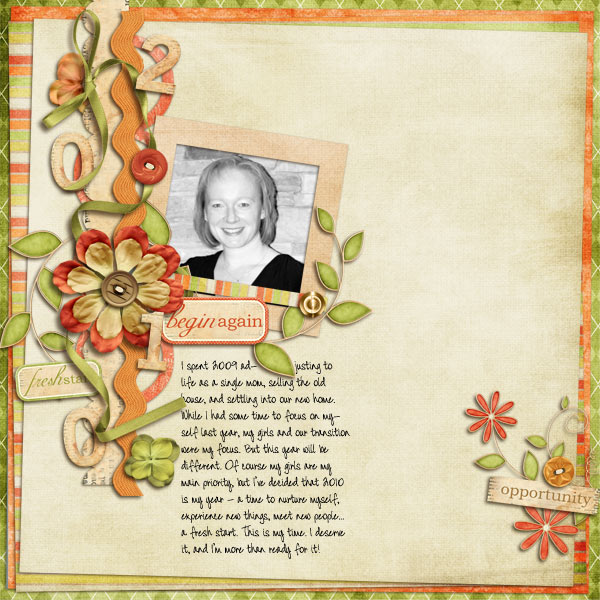 2
0
begin again
1
fresh start
0
I spent 2009 ad- justing to
life as a single mom, selling the old
house, and settling into our new home.
While I had some time to focus on my-
self last year, my girls and our transition
were my focus. But this year will be
different. Of course my girls are my
main priority, but I've decided that 2010
is my year - a time to nurture myself,
experience new things, meet new people...
a fresh start. This is my time. I deserve
it, and I'm more than ready for it!
opportunity